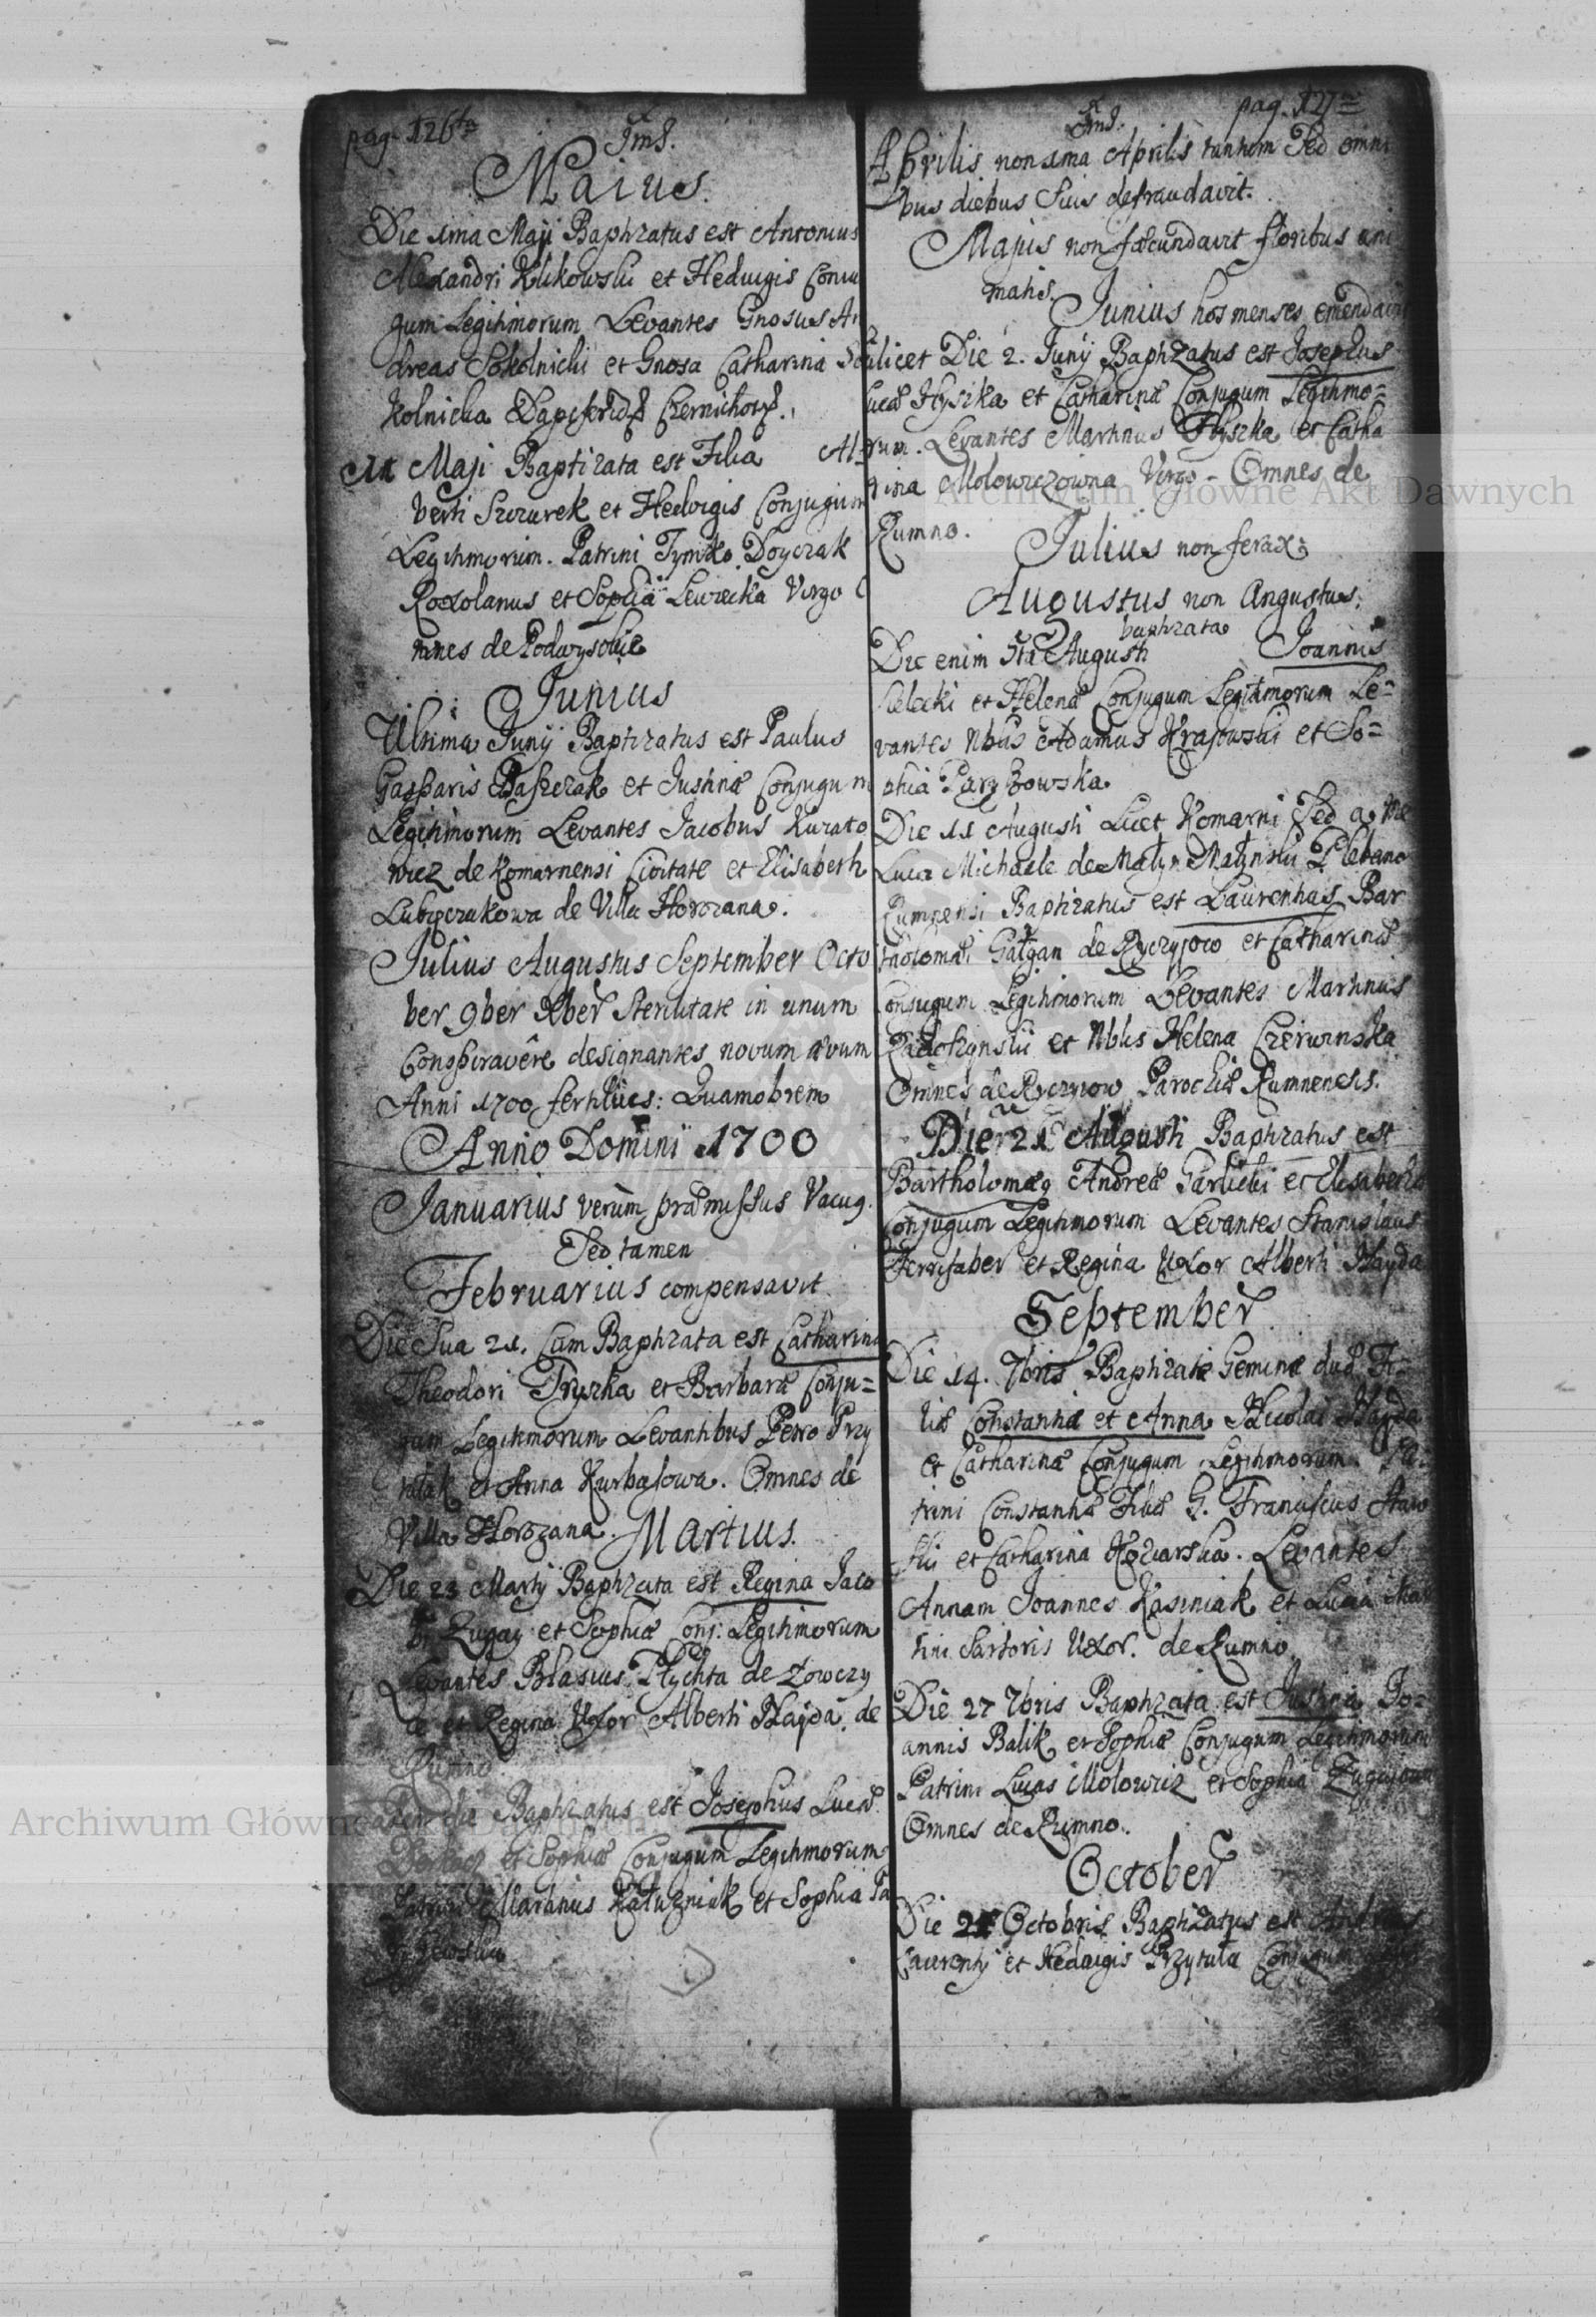 pag. 126ta
Jmd.
Maius.
Die 1ma Maji Baptizatus est Antonius
Alexandri Klikowski et Hedvigis Coniu
gum Legitimorum Levantes Gnosus An
dreas Sokolnicki et Gnosa Catharina So
kolnicka
11 Maji Baptizata est Filia Al
berti Szczurek et Hedvigis Conjugum
Legitimorum. Patrini Tymko Doyczak
Roxolanus et Sophia Lewecka Virgo O
mnes de Podwysokie
Junius
Ultima Junij Baptizatus est Paulus
Gasparis Paszczak et Justinæ Conjugum
Legitimorum Levantes Jacobus Kurato
wicz de Komarnensi Civitate et Elisabeth
Lubyczakowa de Villa Horozana.
Julius Augustus September Octo
ber 9ber Xber Sterilitate in unum
Conspiravêre designantes novum ævum
Anni 1700 Quamobrem
Anno Domini 1700
Januarius verùm præmissus Vacuq.
Sed tamen
Februarius compensavit.
Die Sua 21. Cum Baptizata est Catharina
Theodori Tryszka et Barbaræ Conju=
gum Legitimorum Levantibus Petro Przy
et Anna Kurbasowa. Omnes de
Villa Horozana. Martius.
Die 23 Martij Baptizata est Regina Jaco
bi Zugay et Sophiæ Conj: Legitimorum
Levantes Blasius Plychta de Lowczy
ce et Regina Uxor Alberti Hayda de
Rumno.
Eadem die Baptizatus est Josephus Lucæ
et Sophiæ Conjugum Legitimorum
Patrini Martinus Kałuzniak et Sophia
pag. 127ma
Jmd.
Aprilis non 1ma Aprilis tantum Sed omni
bus diebus Suis defraudavit.
Majus non fæcundavit floribus ani
matis.
Junius hos menses emendavit
Scilicet Die 2. Junij Baptizatus est Josephus
Lucæ Hyszka et Catharinæ Conjugum Legitimo=
rum. Levantes Martinus Hyszka et Catha
rina Molowiczowna Virgo - Omnes de
Rumno.
Julius non ferax;
Augustus non Angustus;
baptizata
Die enim 5ta Augusti Joannis
Sielecki et Helenæ Conjugum Legitimorum Le=
vantes Nblis Adamus Krajewski et So=
phia Parzkowska
Die 11 Augusti Licet Komarni Sed a me
Luca Michaele de Małyn Małynski Plebano
Rumnensi Baptizatus est Laurentius Bar
tholomæi Gałgan de Ryczyjow et Catharinæ
Conjugum Legitimorum Levantes Martinus
et Nblis Helena Czerwinska
Omnes de Ryczyjow Parochiæ Rumnensis.
Die 21 Augusti Baptizatus est
Bartholomæq Andreæ Garlicki et Elisabethæ
Conjugum Legitimorum Levantes Stanislaus
Ferrifaber et Regina Uxor Alberti Hayda
September.
Die 14. 7bris Baptizatæ Geminæ duæ Fi=
liæ Constantia et Anna Nicolai Hayda
et Catharinæ Conjugum Legitimorum. Pa=
trini Constantiæ Filiæ G. Franciscus Staw
ski et Catharina Kozarska. Levantes
Annam Joannes Kasiniak et Lucia Mar
tini Sartoris Uxor. de Rumno
Die 27 7bris Baptizata est Justina Jo=
annis Balik et Sophiæ Conjugum Legitimorum
Patrini Lucas Molowicz et Sophia
Omnes de Rumno.
October
Die 21 Octobris Baptizatus est Andreas
Laurentij et Hedwigis Przytula Conjugum
Archiwum Główne Akt Dawnych
Archiwum Główne Akt Dawnych